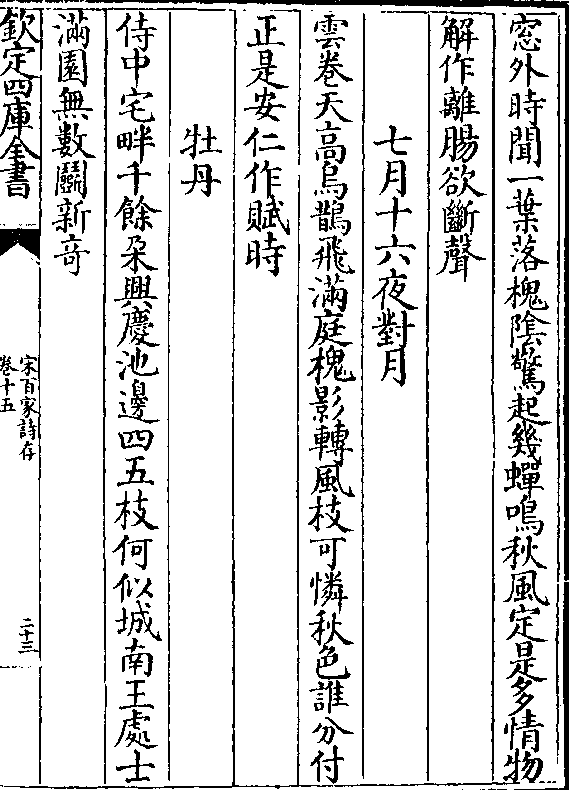 窓外時聞一葉落槐陰驚起幾蟬鳴秋風定是多情物
解作離腸欲斷聲
七月十六夜對月
雲巻天高烏鵲飛滿庭槐影轉風枝可憐秋色誰分付
正是安仁作賦時
牡丹
侍中宅畔千餘朶興慶池邊四五枝何似城南王處士
滿園無數鬭新奇
欽定四庫全書
宋百家詩存
卷十五
二十三